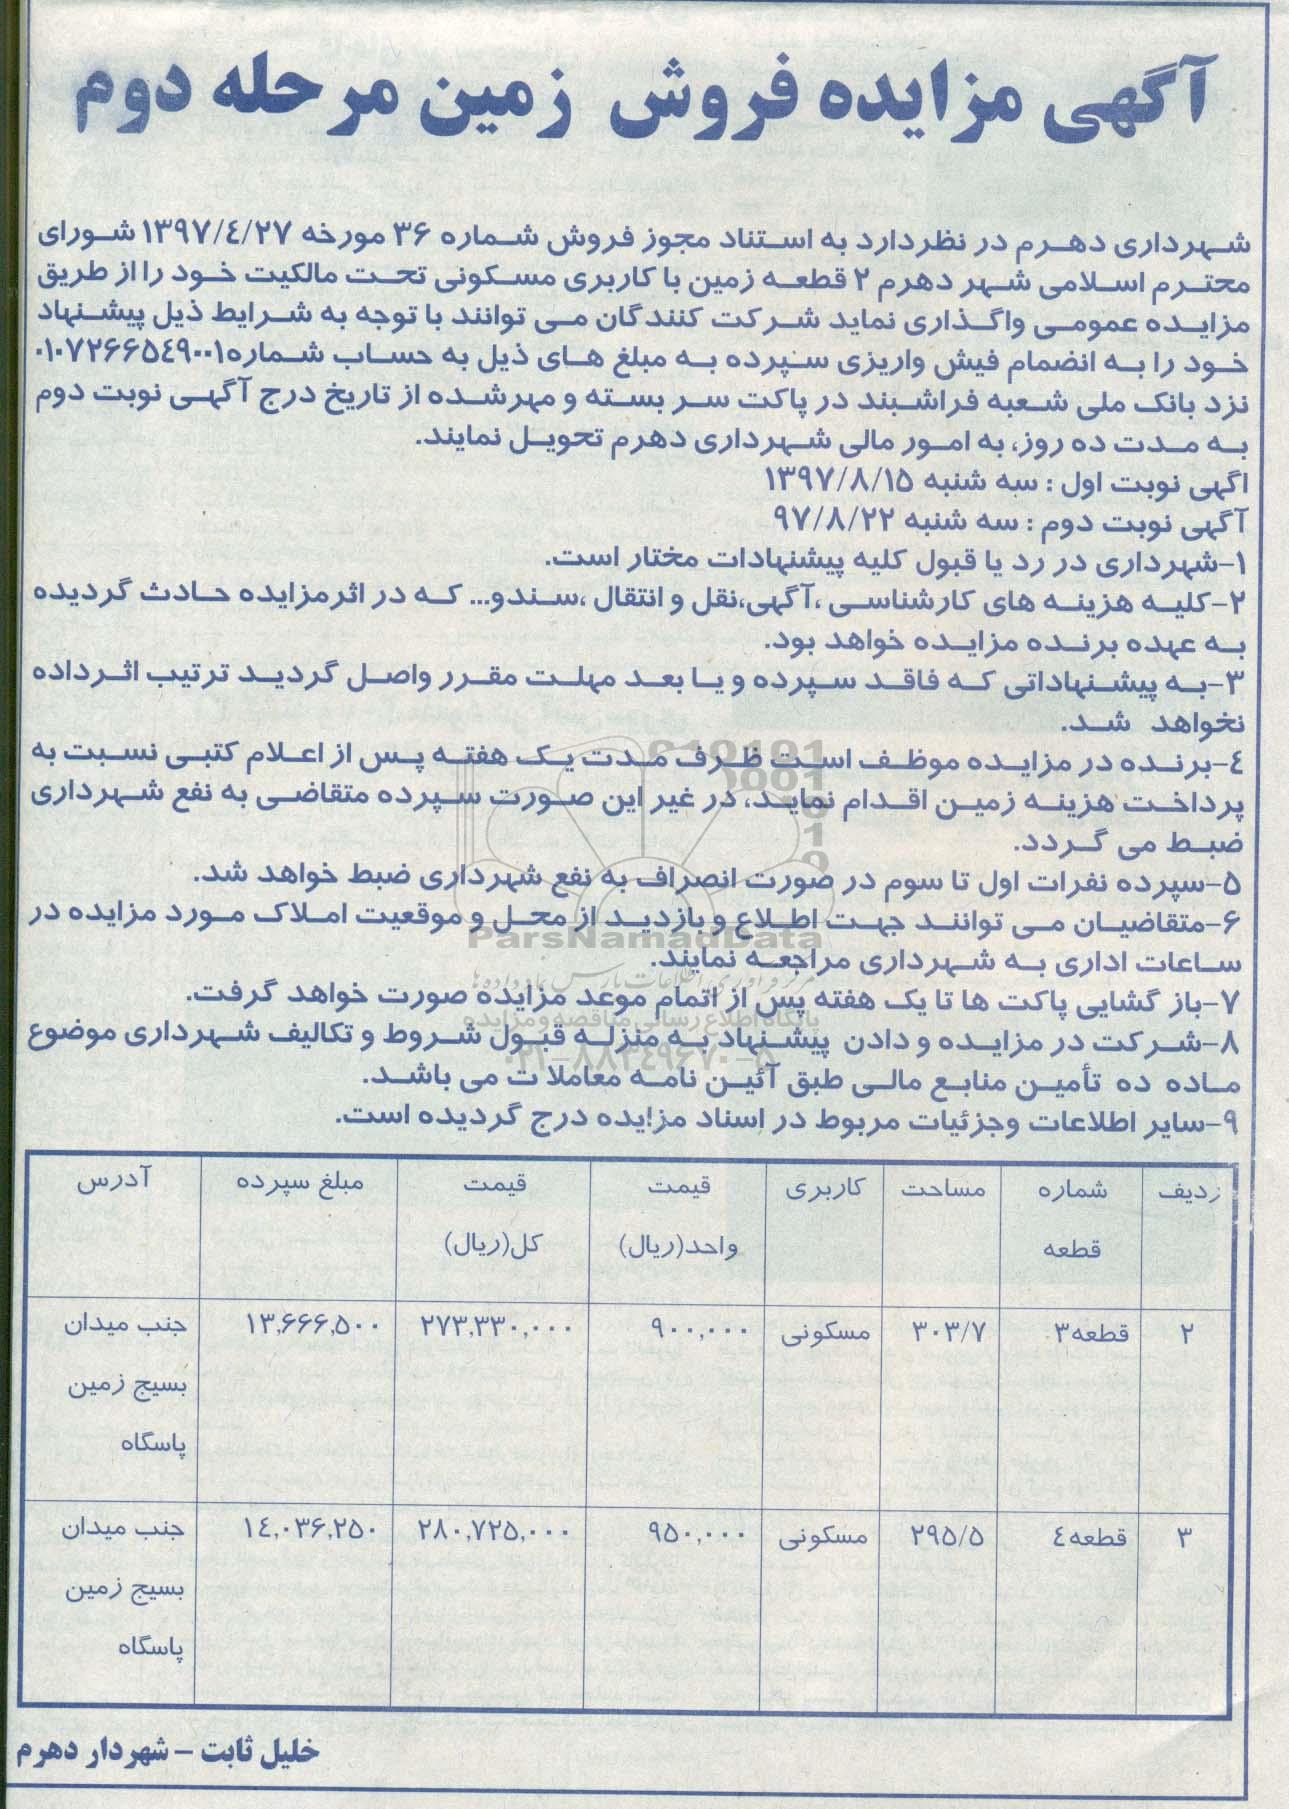 آگهی مزایده فروش زمین مرحله دوم
شهرداری دهرم در نظردارد به استناد مجوز فروش شماره ۳۶ مورخه ۱۳۹۷/۴/۲۷ شورای
محترم اسلامی شهر دهرم ۲ قطعه زمین با کاربری مسکونی تحت مالکیت خود را از طریق
مزایده عمومی واگذاری نماید شرکت کنندگان می توانند با توجه به شرایط ذیل پیشنهاد
خود را به انضمام فیش واریزی سپرده به مبلغ های ذیل به حساب شماره۰۱۰۷۲۶۶۵۴۹۰۰۱
نزد بانک ملی شعبه فراشبند در پاکت سر بسته و مهرشده از تاریخ درج آگهی نوبت دوم
به مدت ده روز، به امور مالی شهرداری دهرم تحویل نمایند.
اگهی نوبت اول : سه شنبه ۱۳۹۷/۸/۱۵
آگهی نوبت دوم : سه شنبه ۹۷/۸/۲۲
۱-شهرداری در رد یا قبول کلیه پیشنهادات مختار است.
۲-کلیه هزینه های کارشناسی ،آگهی،نقل و انتقال ،سندو... که در اثرمزایده حادث گردیده
به عهده برنده مزایده خواهد بود.
۳-به پیشنهاداتی که فاقد سپرده و یا بعد مهلت مقرر واصل گردید ترتیب اثرداده
نخواهد شد.
۴-برنده در مزایده موظف است ظرف مدت یک هفته پس از اعلام کتبی نسبت به
پرداخت هزینه زمین اقدام نماید، در غیر این صورت سپرده متقاضی به نفع شهرداری
ضبط می گردد.
۵-سپرده نفرات اول تا سوم در صورت انصراف به نفع شهرداری ضبط خواهد شد.
۶-متقاضیان می توانند جهت اطلاع و بازدید از محل و موقعیت املاک مورد مزایده در
ParsNamadData
ساعات اداری به شهرداری مراجعه نمایند.
مرکز فرآوری اطلاعات پارس نماد داده ها
۷-باز گشایی پاکت ها تا یک هفته پس از اتمام موعد مزایده صورت خواهد گرفت.
پایگاه اطلاع رسانی مناقصه و مزایده
۸-شرکت در مزایده و دادن پیشنهاد به منزله قبول شروط و تکالیف شهرداری موضوع
۰۲۱-۸۸۳۴۹۶۷۰-۵
ماده ده تأمین منابع مالی طبق آئین نامه معاملات می باشد.
۹-سایر اطلاعات وجزئیات مربوط در اسناد مزایده درج گردیده است.
ردیف شماره قطعه مساحت کاربری قیمت واحد(ریال) قیمت کل(ریال) مبلغ سپرده آدرس
۲ قطعه۳ ۳۰۳/۷ مسکونی ۹۰۰,۰۰۰ ۲۷۳,۳۳۰,۰۰۰ ۱۳,۶۶۶,۵۰۰ جنب میدان
بسیج زمین
پاسگاه
۳ قطعه۴ ۲۹۵/۵ مسکونی ۹۵۰,۰۰۰ ۲۸۰,۷۲۵,۰۰۰ ۱۴,۰۳۶,۲۵۰ جنب میدان
بسیج زمین
پاسگاه
خلیل ثابت - شهردار دهرم